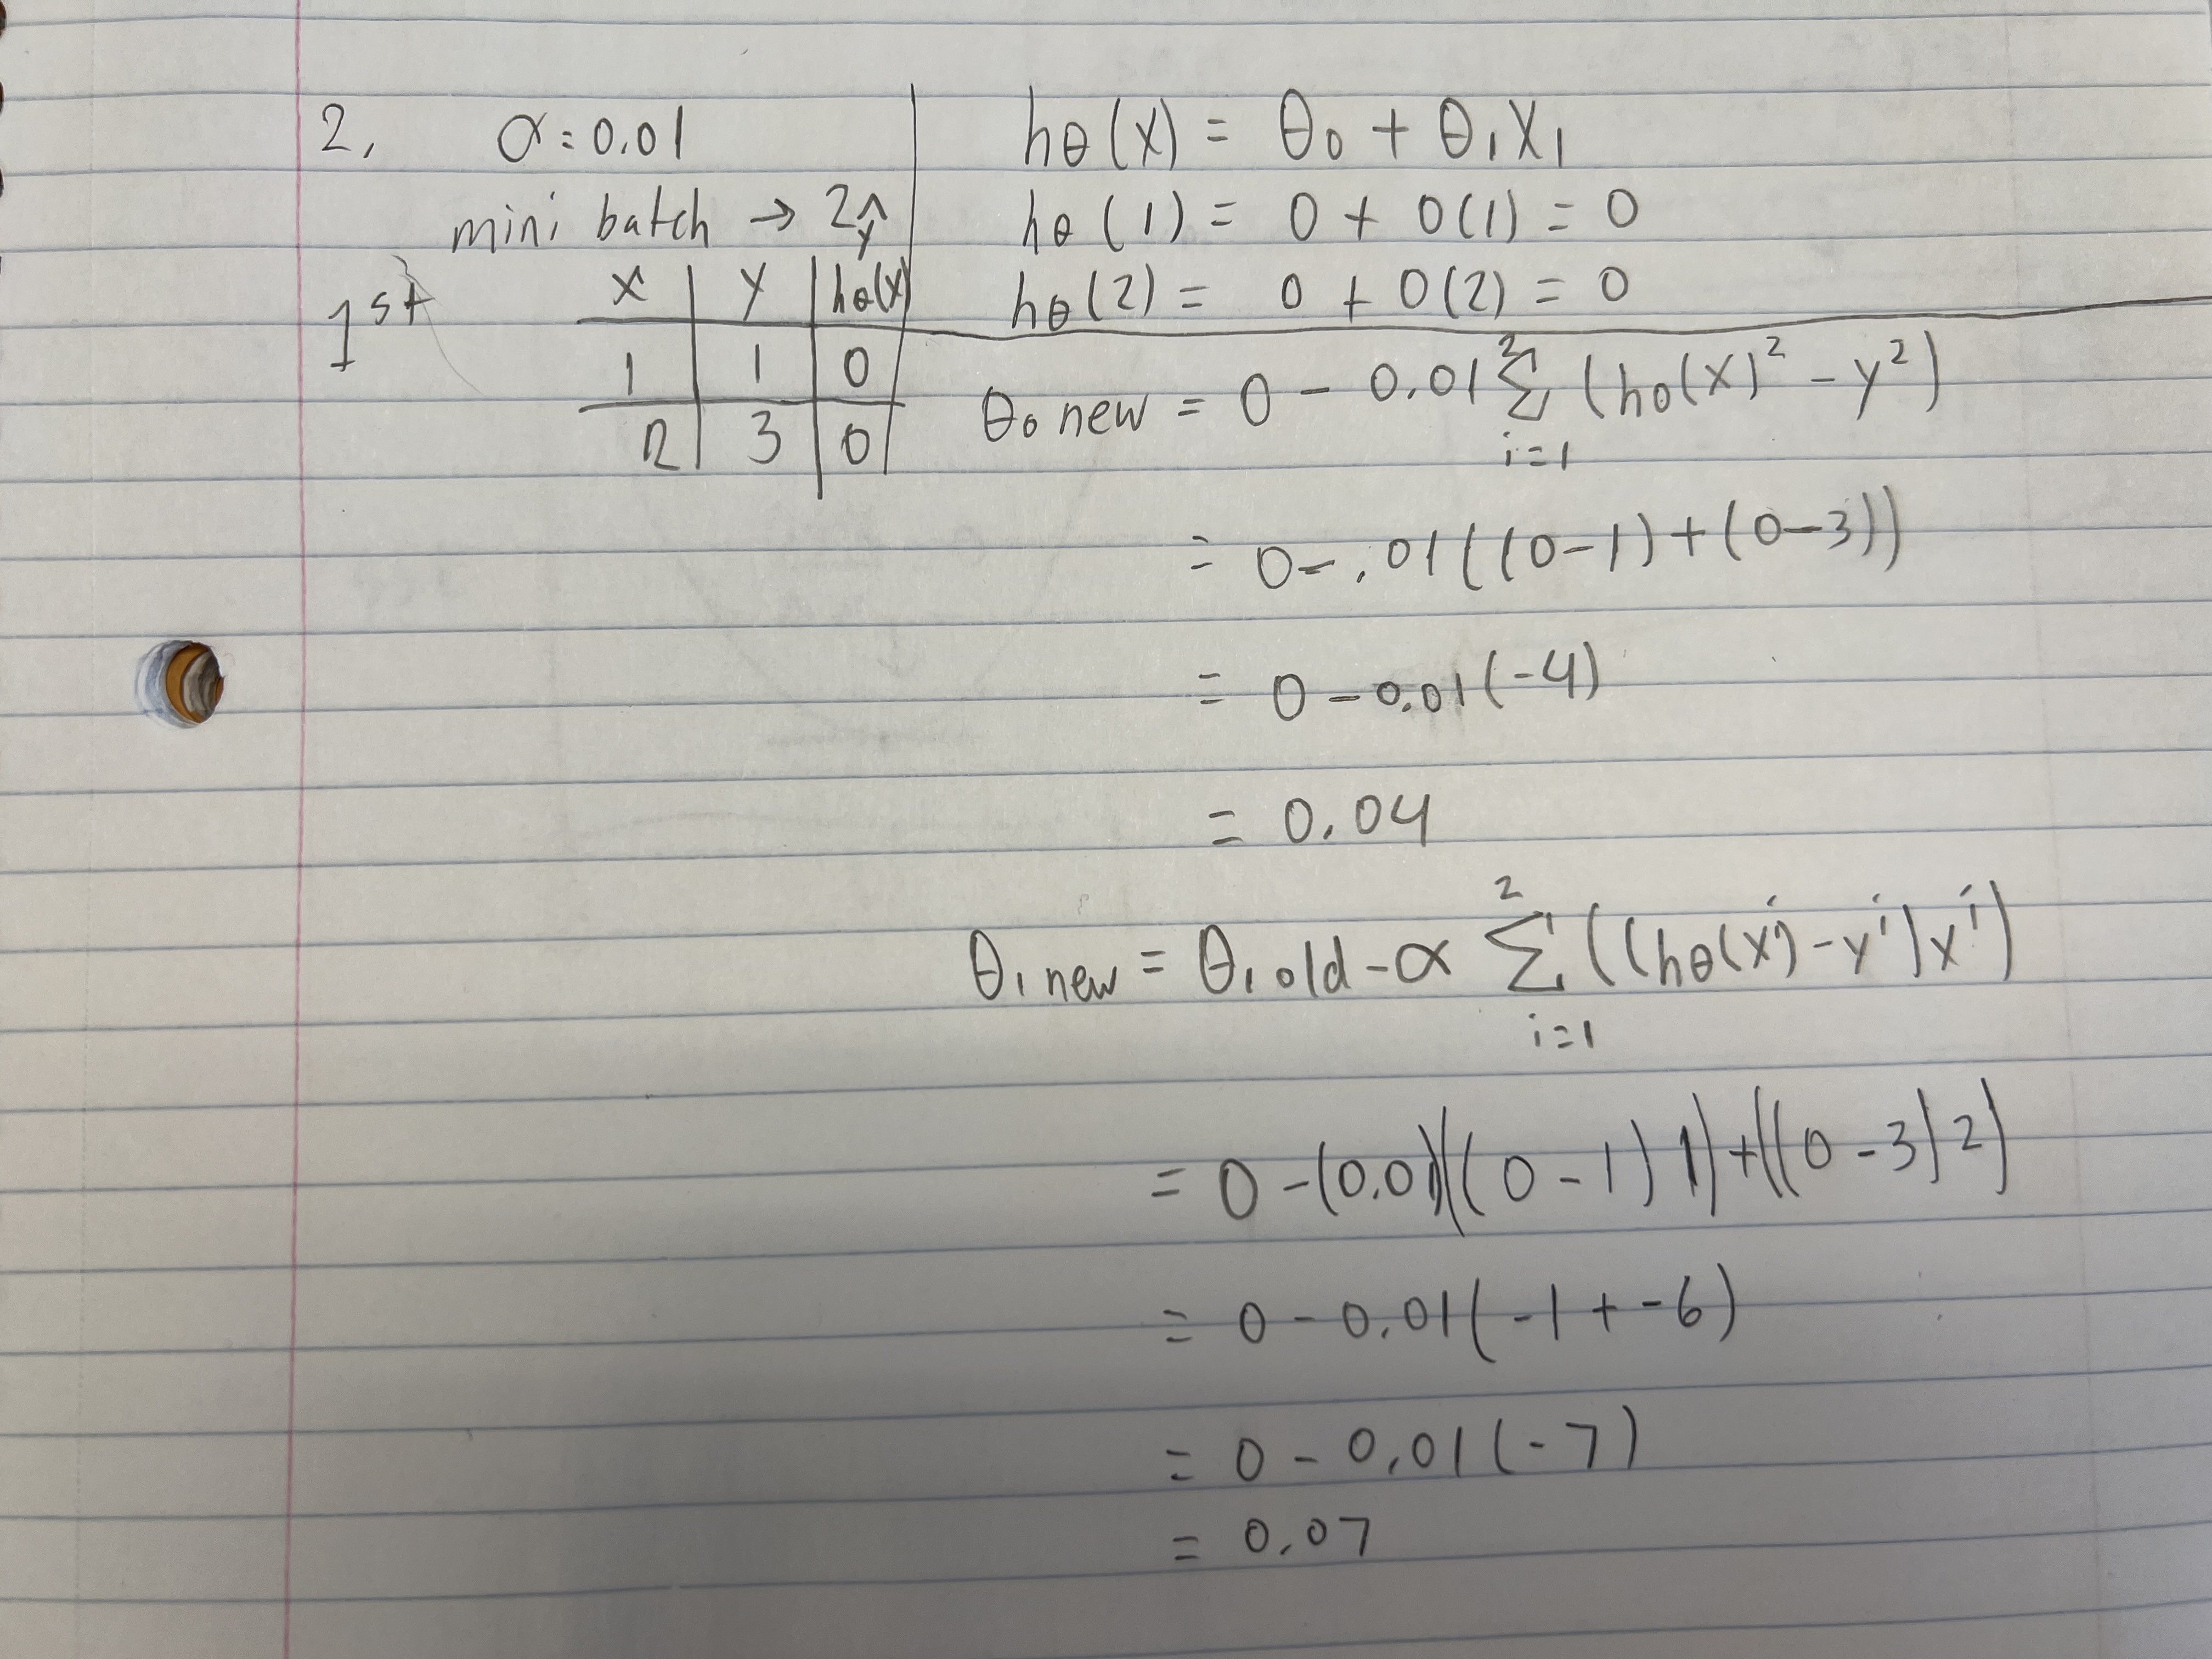 2, α = 0.01
mini batch → 2 ŷ
1st
x | y | hθ(x)
1 | 1 | 0
2 | 3 | 0
hθ(x) = θ0 + θ1x1
hθ(1) = 0 + 0(1) = 0
hθ(2) = 0 + 0(2) = 0
θ0 new = 0 - 0.01 Σ_{i=1}^{2} (hθ(x)² - y²)
= 0 - .01((0-1)+(0-3))
= 0 - 0.01(-4)
= 0.04
θ1 new = θ1 old - α Σ_{i=1}^{2} ((hθ(xⁱ) - yⁱ)xⁱ)
= 0 - (0.01)((0-1)1)+((0-3)2)
= 0 - 0.01(-1 + -6)
= 0 - 0.01(-7)
= 0.07